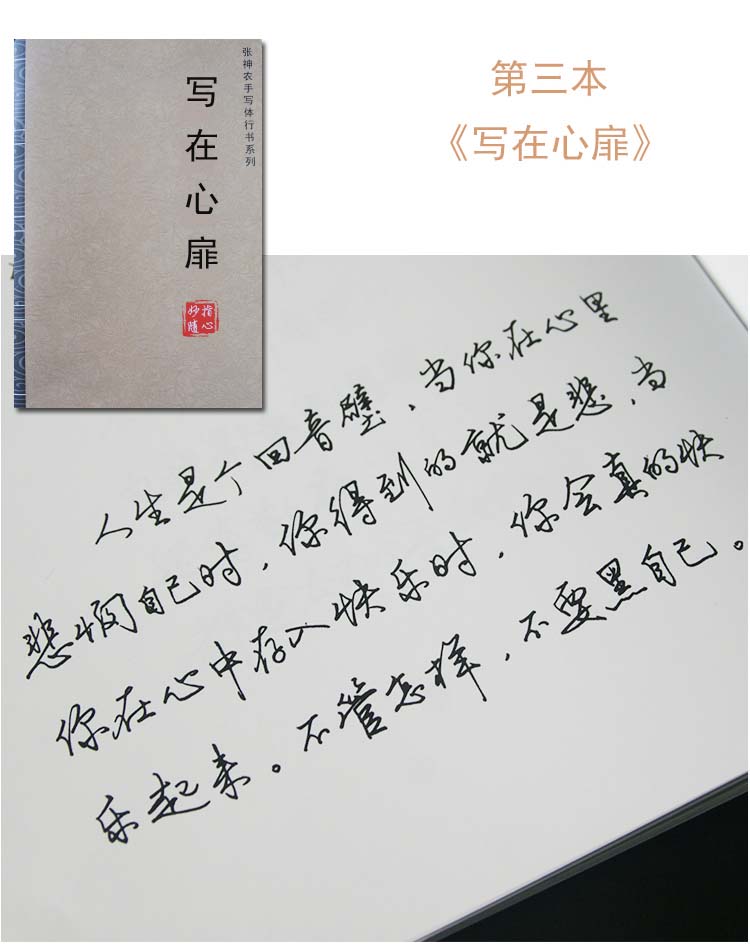 张神农手写体行书系列
写在心扉
指心
妙隨
第三本
《写在心扉》
人生是个回音壁，当你在心里
悲悯自己时，你得到的就是悲，当
你在心中存入快乐时，你会真的快
乐起来。不管怎样，不要黑自己。